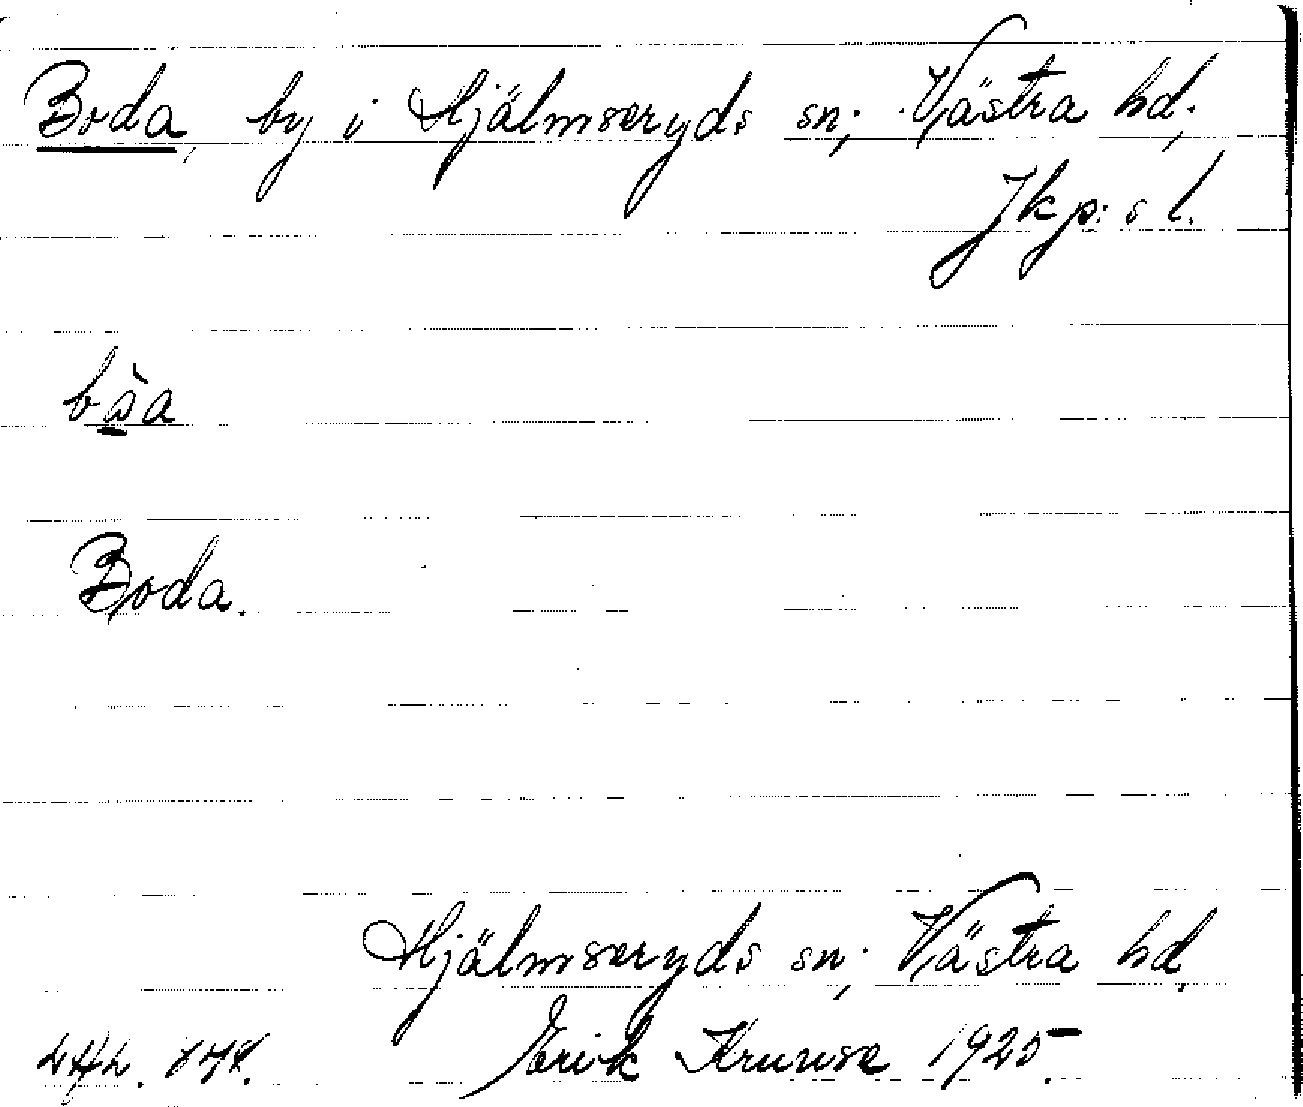 Boda, by i Hjälmseryds sn; Västra hd;
Jkp:s l.
bàa
Boda.
Hjälmseryds sn; Västra hd,
Erik Kruuse 1925.